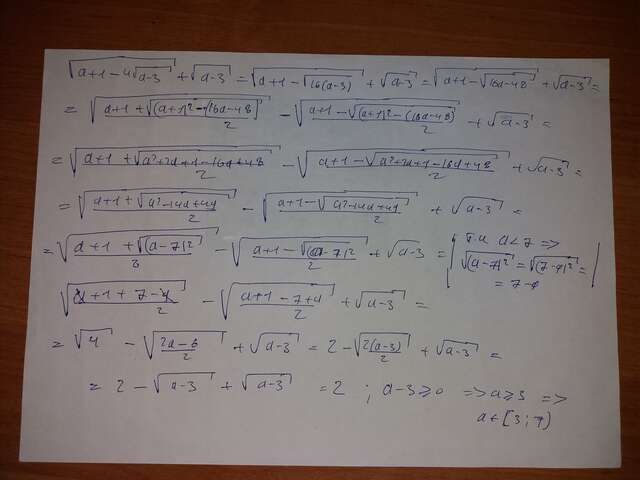 √(a+1-4√(a-3)) + √(a-3) = √(a+1-√(16(a-3))) + √(a-3) = √(a+1-√(16a-48)) + √(a-3) =
= √((a+1+√((a+1)²-16a+48))/2) - √((a+1-√((a+1)²-(16a-48)))/2) + √(a-3) =
= √((a+1+√(a²+2a+1-16a+48))/2) - √((a+1-√(a²+2a+1-16a+48))/2) + √(a-3) =
= √((a+1+√(a²-14a+49))/2) - √((a+1-√(a²-14a+49))/2) + √(a-3) =
= √((a+1+√((a-7)²))/2) - √((a+1-√((a-7)²))/2) + √(a-3) = | т.к a<7 => √((a-7)²) = √((7-a)²) = = 7-a |
√((a+1+7-a)/2) - √((a+1-7+a)/2) + √(a-3) =
= √4 - √((2a-6)/2) + √(a-3) = 2 - √(2(a-3)/2) + √(a-3) =
= 2 - √(a-3) + √(a-3) = 2 ; a-3≥0 => a≥3 =>
a∈[3;7)